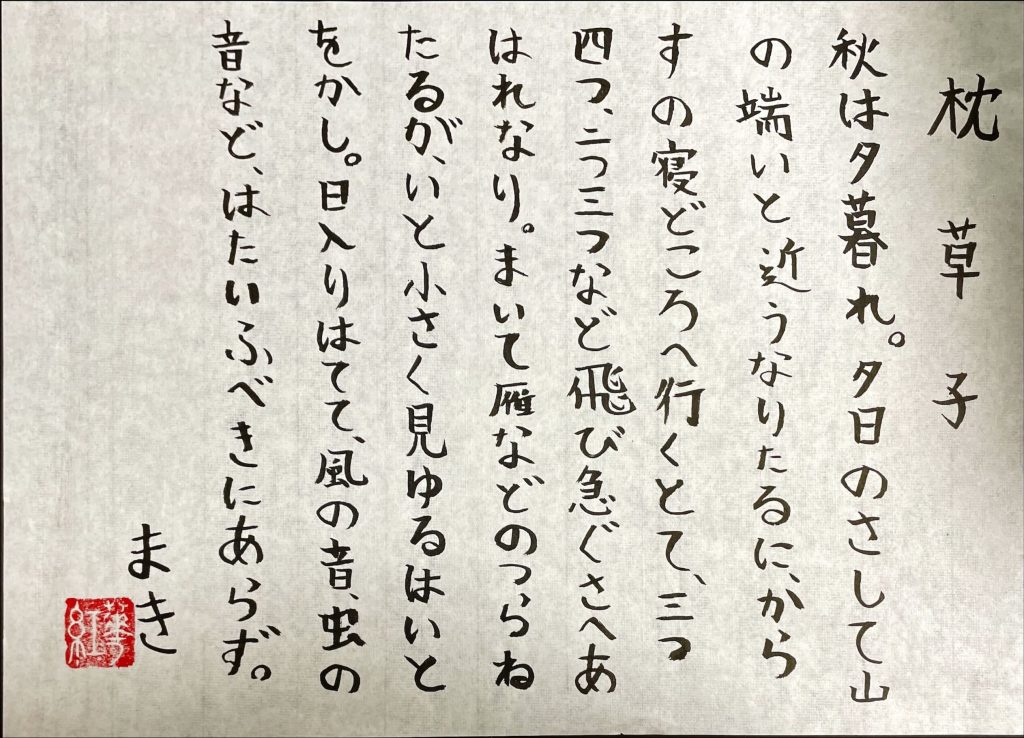 枕草子
秋は夕暮れ。夕日のさして山
の端いと近うなりたるに、から
すの寝どころへ行くとて、三つ
四つ、二つ三つなど飛び急ぐさへあ
はれなり。まいて雁などのつらね
たるが、いと小さく見ゆるはいと
をかし。日入りはてて、風の音、虫の
音など、はたいふべきにあらず。
まき